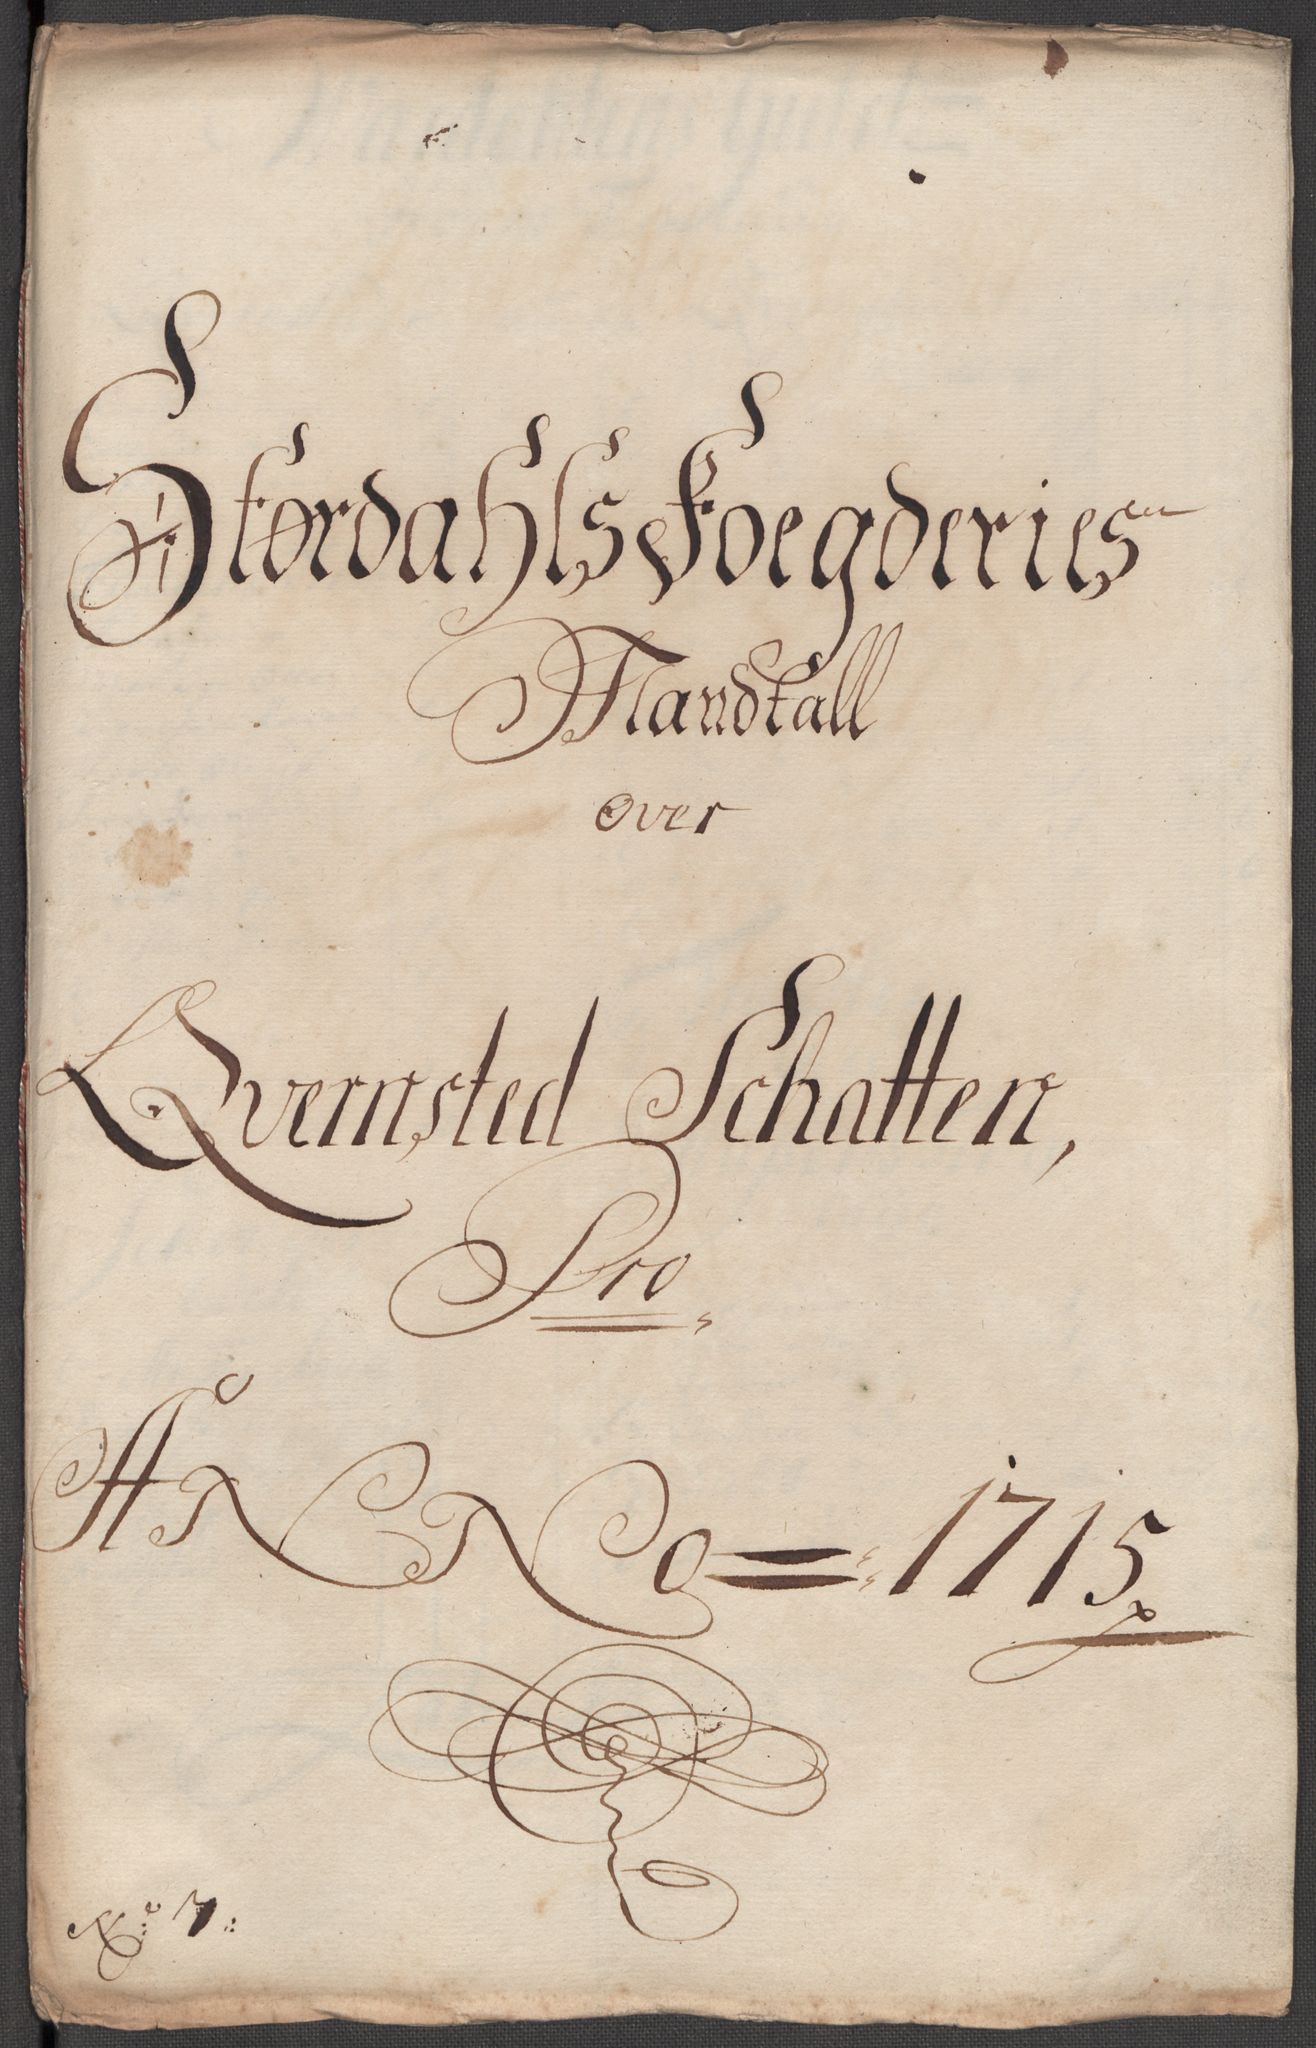 Størdahls Foegderies
Mandtall
over
Qvernsted Schatten,
Pro
ANNo 1715
No: 7: